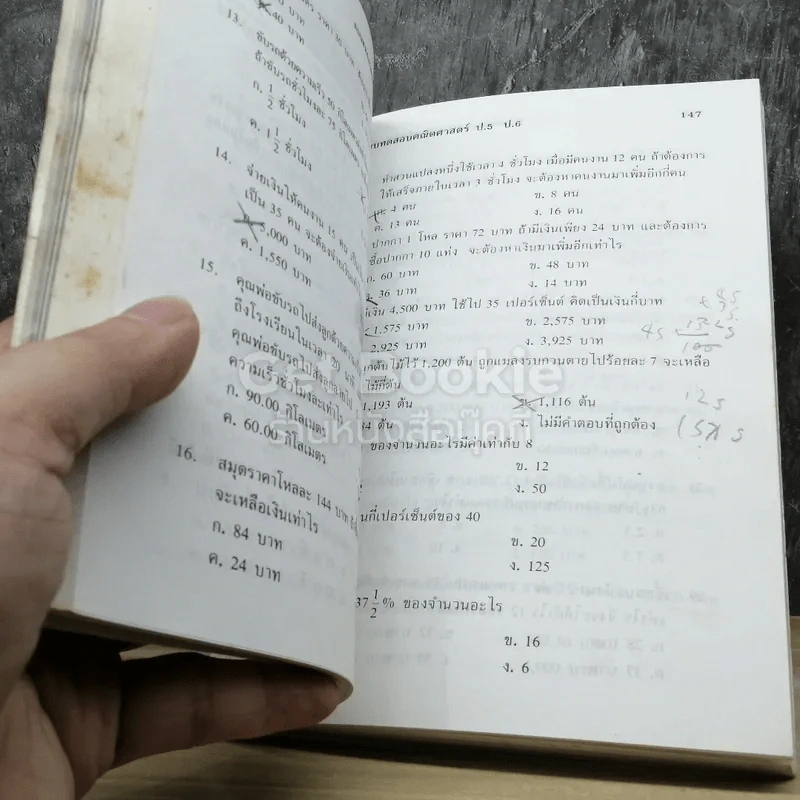 40 บาท
13. ขับรถด้วยความเร็ว 50
ถ้าขับรถชั่วโมงละ 75
ก. 1/2 ชั่วโมง
ค. 1 1/2 ชั่วโมง
14. จ่ายเงินให้คนงาน 15 คน
เป็น 35 คน จะต้องจ่ายเงิน
ก. 5,000 บาท
ค. 1,550 บาท
15. คุณพ่อขับรถไปส่งลูกด้วยความ
ถึงโรงเรียนในเวลา 20
คุณพ่อขับรถไปส่งลูกภายใน
ความเร็วชั่วโมงละเท่าไร
ก. 90.00 กิโลเมตร
ค. 60.00 กิโลเมตร
16. สมุดราคาโหลละ 144 บาท
จะเหลือเงินเท่าไร
ก. 84 บาท
ค. 24 บาท
บทดสอบคณิตศาสตร์ ป.5 ป.6 147
ทำสวนแปลงหนึ่งใช้เวลา 4 ชั่วโมง เมื่อมีคนงาน 12 คน ถ้าต้องการ
ให้เสร็จภายในเวลา 3 ชั่วโมง จะต้องหาคนงานมาเพิ่มอีกกี่คน
4 คน ข. 8 คน
ค. 13 คน ง. 16 คน
ปากกา 1 โหล ราคา 72 บาท ถ้ามีเงินเพียง 24 บาท และต้องการ
ซื้อปากกา 10 แท่ง จะต้องหาเงินมาเพิ่มอีกเท่าไร
ก. 60 บาท ข. 48 บาท
36 บาท ง. 14 บาท
เงิน 4,500 บาท ใช้ไป 35 เปอร์เซ็นต์ คิดเป็นเงินกี่บาท
1,575 บาท ข. 2,575 บาท
2,925 บาท ง. 3,925 บาท
ต้นไม้ไว้ 1,200 ต้น ถูกแมลงรบกวนตายไปร้อยละ 7 จะเหลือ
ไม้กี่ต้น
1,193 ต้น ข. 1,116 ต้น
84 ต้น ง. ไม่มีคำตอบที่ถูกต้อง
ของจำนวนอะไรมีค่าเท่ากับ 8
ข. 12
ง. 50
นกี่เปอร์เซ็นต์ของ 40
ข. 20
ง. 125
37 1/2% ของจำนวนอะไร
ข. 16
ง. 6
45
125
Get Bookie
ร้านหนังสือบุ๊คกี้